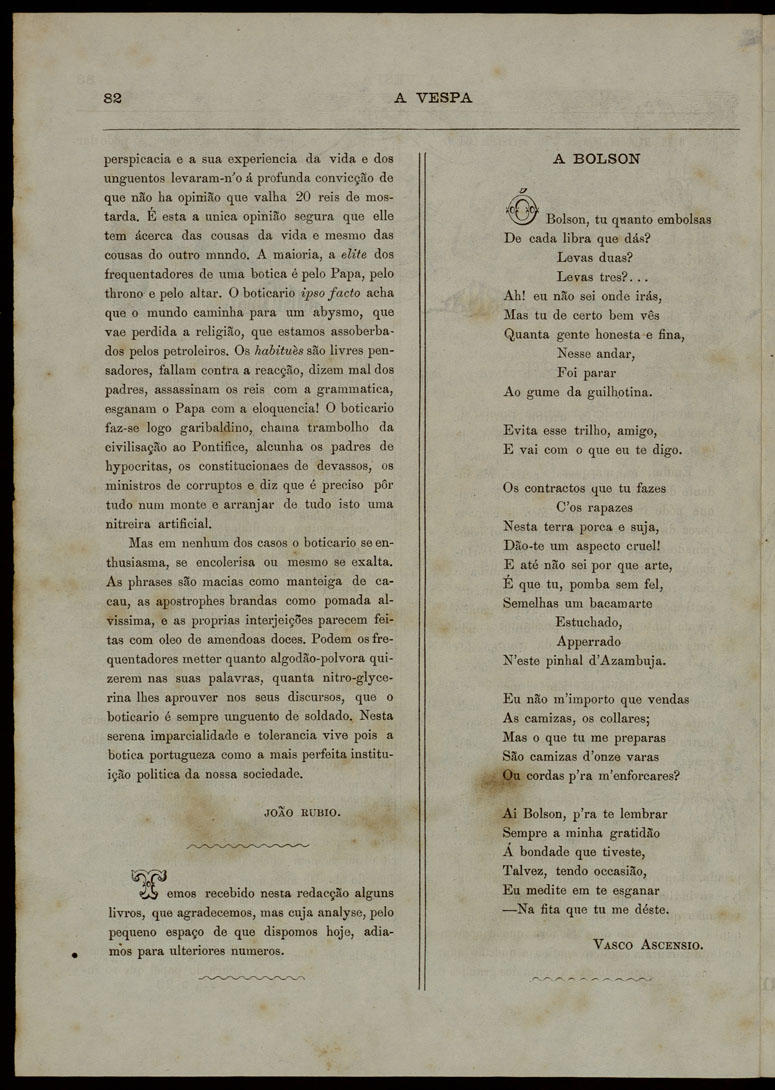 82
A VESPA
perspicacia e a sua experiencia da vida e dos
unguentos levaram-n'o á profunda convicção de
que não ha opinião que valha 20 reis de mos-
tarda. É esta a unica opinião segura que elle
tem ácerca das cousas da vida e mesmo das
cousas do outro mnndo. A maioria, a elite dos
frequentadores de uma botica é pelo Papa, pelo
throno e pelo altar. O boticario ipso facto acha
que o mundo caminha para um abysmo, que
vae perdida a religião, que estamos assoberba-
dos pelos petroleiros. Os habituès são livres pen-
sadores, fallam contra a reacção, dizem mal dos
padres, assassinam os reis com a grammatica,
esganam o Papa com a eloquencia! O boticario
faz-se logo garibaldino, chama trambolho da
civilisação ao Pontifice, alcunha os padres de
hypocritas, os constitucionaes de devassos, os
ministros de corruptos e diz que é preciso pôr
tudo num monte e arranjar de tudo isto uma
nitreira artificial.
Mas em nenhum dos casos o boticario se en-
thusiasma, se encolerisa ou mesmo se exalta.
As phrases são macias como manteiga de ca-
cau, as apostrophes brandas como pomada al-
vissima, e as proprias interjeições parecem fei-
tas com oleo de amendoas doces. Podem os fre-
quentadores metter quanto algodão-polvora qui-
zerem nas suas palavras, quanta nitro-glyce-
rina lhes aprouver nos seus discursos, que o
boticario é sempre unguento de soldado. Nesta
serena imparcialidade e tolerancia vive pois a
botica portugueza como a mais perfeita institu-
ição politica da nossa sociedade.
JOÃO RUBIO.
Temos recebido nesta redacção alguns
livros, que agradecemos, mas cuja analyse, pelo
pequeno espaço de que dispomos hoje, adia-
mos para ulteriores numeros.
A BOLSON
Ó Bolson, tu quanto embolsas
De cada libra que dás?
Levas duas?
Levas tres?...
Ah! eu não sei onde irás,
Mas tu de certo bem vês
Quanta gente honesta e fina,
Nesse andar,
Foi parar
Ao gume da guilhotina.
Evita esse trilho, amigo,
E vai com o que eu te digo.
Os contractos que tu fazes
C'os rapazes
Nesta terra porca e suja,
Dão-te um aspecto cruel!
E até não sei por que arte,
É que tu, pomba sem fel,
Semelhas um bacamarte
Estuchado,
Apperrado
N'este pinhal d'Azambuja.
Eu não m'importo que vendas
As camizas, os collares;
Mas o que tu me preparas
São camizas d'onze varas
Ou cordas p'ra m'enforcares?
Ai Bolson, p'ra te lembrar
Sempre a minha gratidão
Á bondade que tiveste,
Talvez, tendo occasião,
Eu medite em te esganar
—Na fita que tu me déste.
VASCO ASCENSIO.